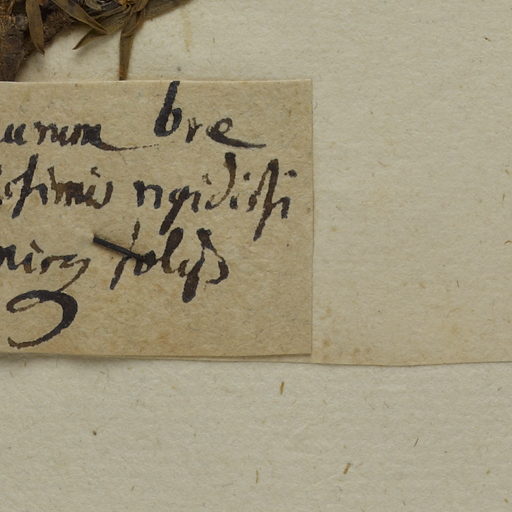 urum bre
issimis rigidissi
misq folijs